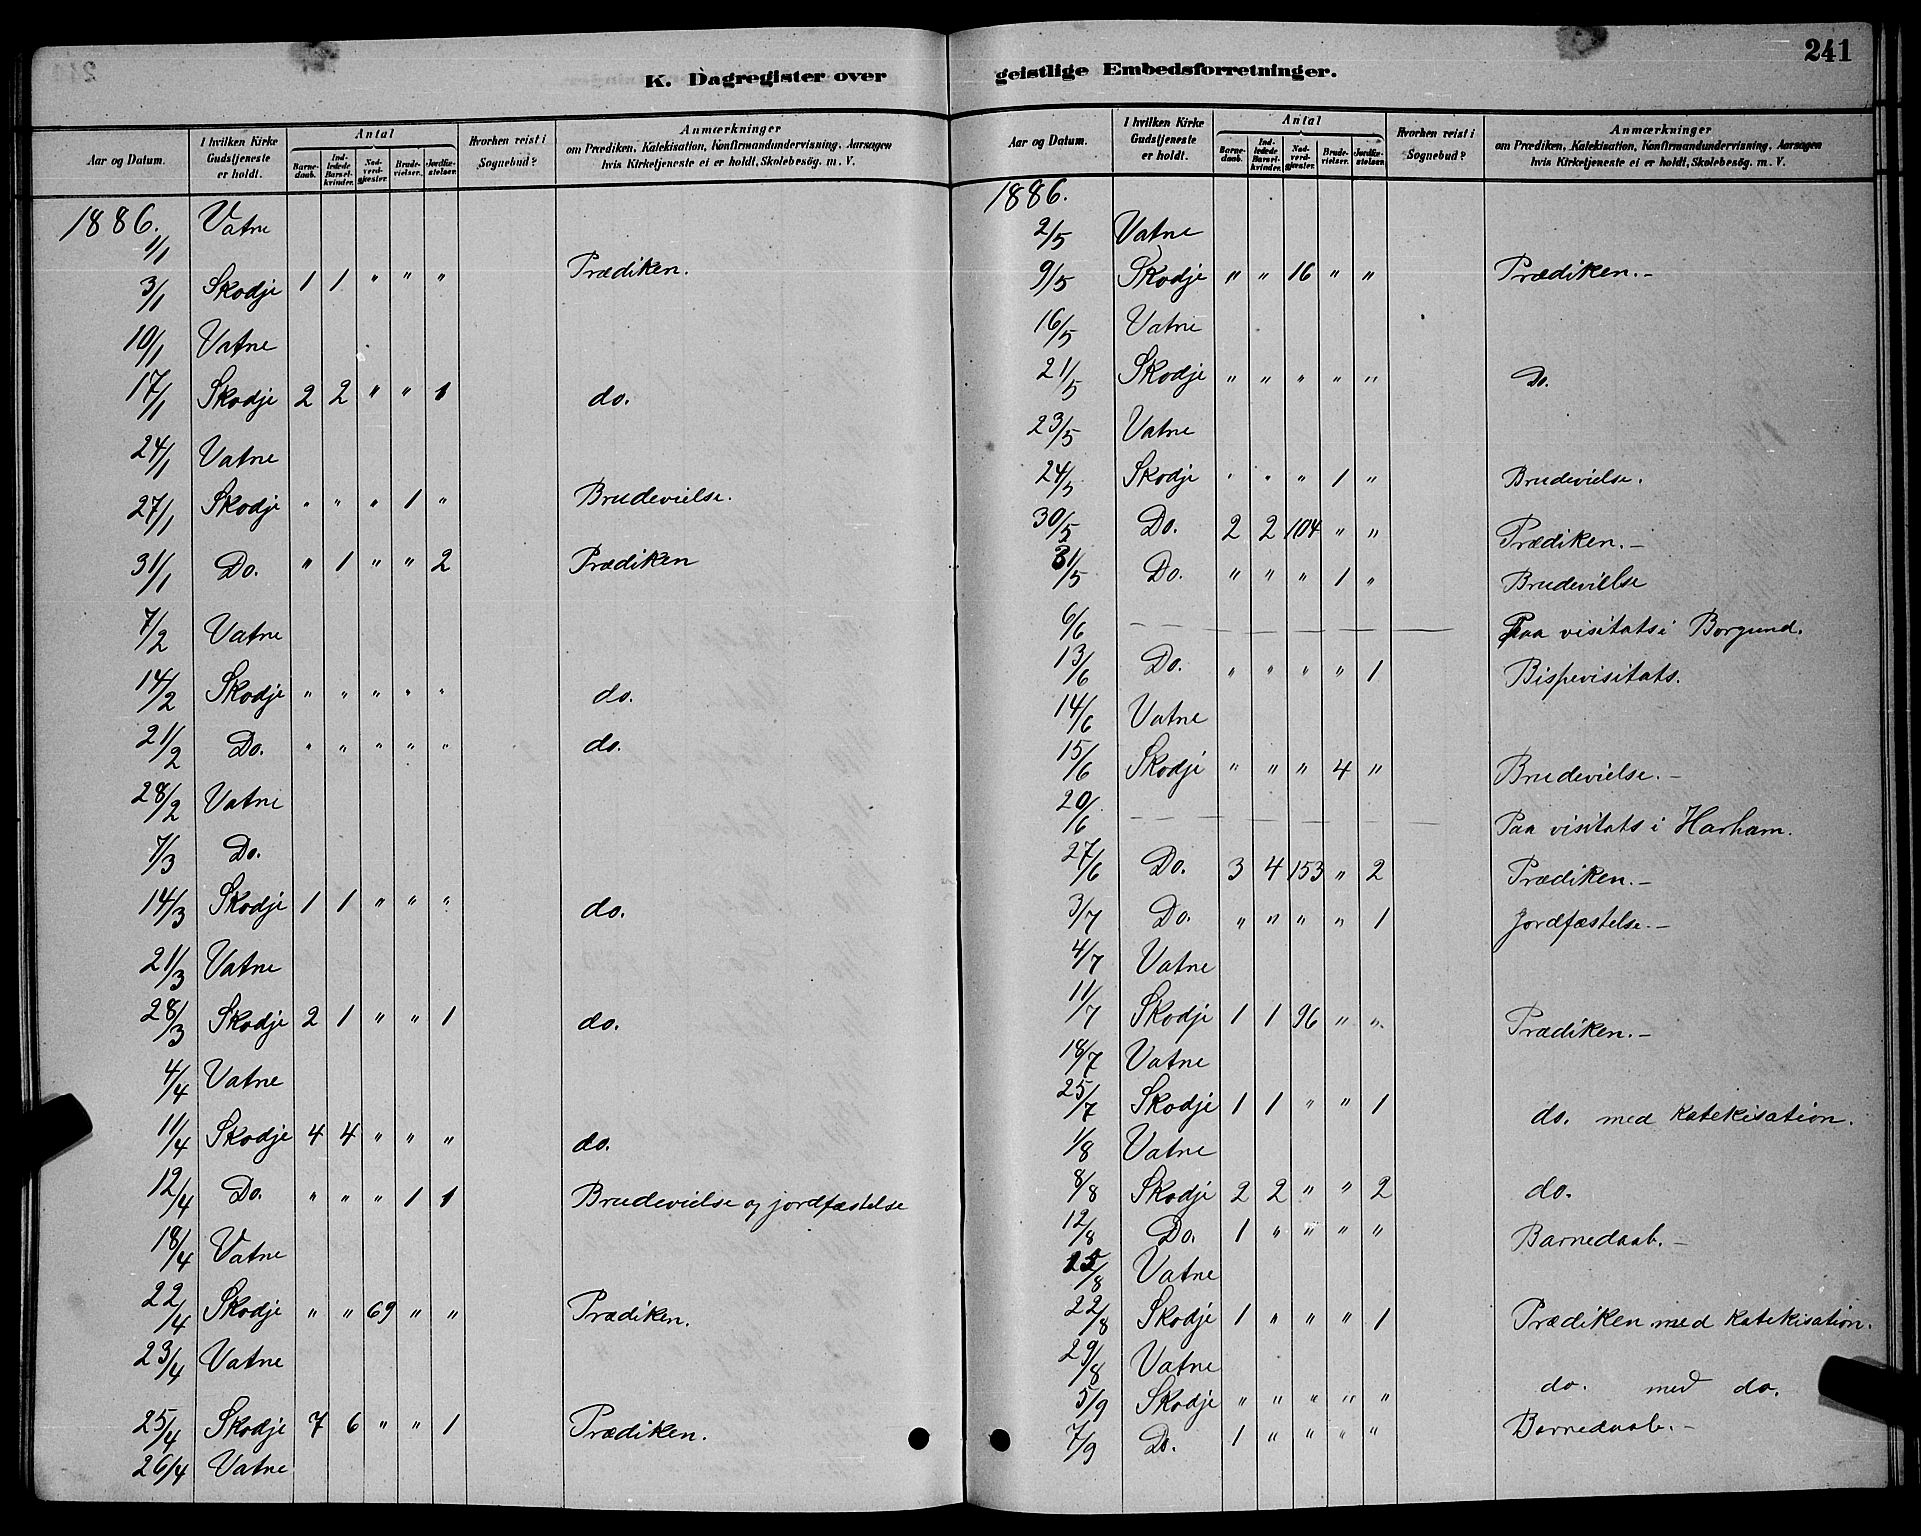 K. Dagregister over
Aar og Datum. | I hvilken Kirke Gudstjeneste er holdt. | Antal | Barnedaab. | Indledede Barselkvinder. | Nadverdgjæster. | Brudevielser. | Jordfæstelser. | Hvorhen reist i Sognebud? | Anmærkninger om Prædiken, Katekisation, Konfirmandundervisning, Aarsagen hvis Kirketjeneste ei er holdt, Skolebesög. m. V.
1886.
1/1 Vatne
3/1 Skodje 1 1 " " " Prædiken.
10/1 Vatne
17/1 Skodje 2 2 " " 1 do.
24/1 Vatne
27/1 Skodje " " " 1 " Brudevielse.
31/1 Do. " 1 " " 2 Prædiken
7/2 Vatne
14/2 Skodje " " " " " do.
21/2 Do. " " " " " do.
28/2 Vatne
7/3 Do.
14/3 Skodje 1 1 " " " do.
21/3 Vatne
28/3 Skodje 2 1 " " 1 do.
4/4 Vatne
11/4 Skodje 4 4 " " " do.
12/4 Do. " " " 1 1 Brudevielse og jordfæstelse
18/4 Vatne
22/4 Skodje " " 69 " " Prædiken.
23/4 Vatne
25/4 Skodje 7 6 " " 1 Prædiken.
26/4 Vatne
geistlige Embedsforretninger.
241
Aar og Datum. | I hvilken Kirke Gudstjeneste er holdt. | Antal | Barnedaab. | Indledede Barselkvinder. | Nadverdgjæster. | Brudevielser. | Jordfæstelser. | Hvorhen reist i Sognebud? | Anmærkninger om Prædiken, Katekisation, Konfirmandundervisning, Aarsagen hvis Kirketjeneste ei er holdt, Skolebesög. m. V.
1886.
2/5 Vatne
9/5 Skodje " " 16 " " Prædiken.-
16/5 Vatne
21/5 Skodje " " " " " Do.
23/5 Vatne
24/5 Skodje " " " 1 " Brudevielse.
30/5 Do. 2 2 104 " " Prædiken.-
31/5 Do. " " " 1 " Brudevielse
6/6 — Paa visitats i Borgund.
13/6 Do. " " " " 1 Bispevisitats.
14/6 Vatne
15/6 Skodje " " " 4 " Brudevielse.-
20/6 — Paa visitats i Harham.
27/6 Do. 3 4 153 " 2 Prædiken.-
3/7 Do. " " " " 1 Jordfæstelse.-
4/7 Vatne
11/7 Skodje 1 1 96 " " Prædiken.-
18/7 Vatne
25/7 Skodje 1 1 " " 1 do. med katekisation.
1/8 Vatne
8/8 Skodje 2 2 " " 2 do.
12/8 Do. 1 " " " " Barnedaab.-
15/8 Vatne
22/8 Skodje 1 " " " 1 Prædiken med katekisation.
29/8 Vatne
5/9 Skodje " " " " " do. med do.
7/9 Do. 1 " " " " Barnedaab.-